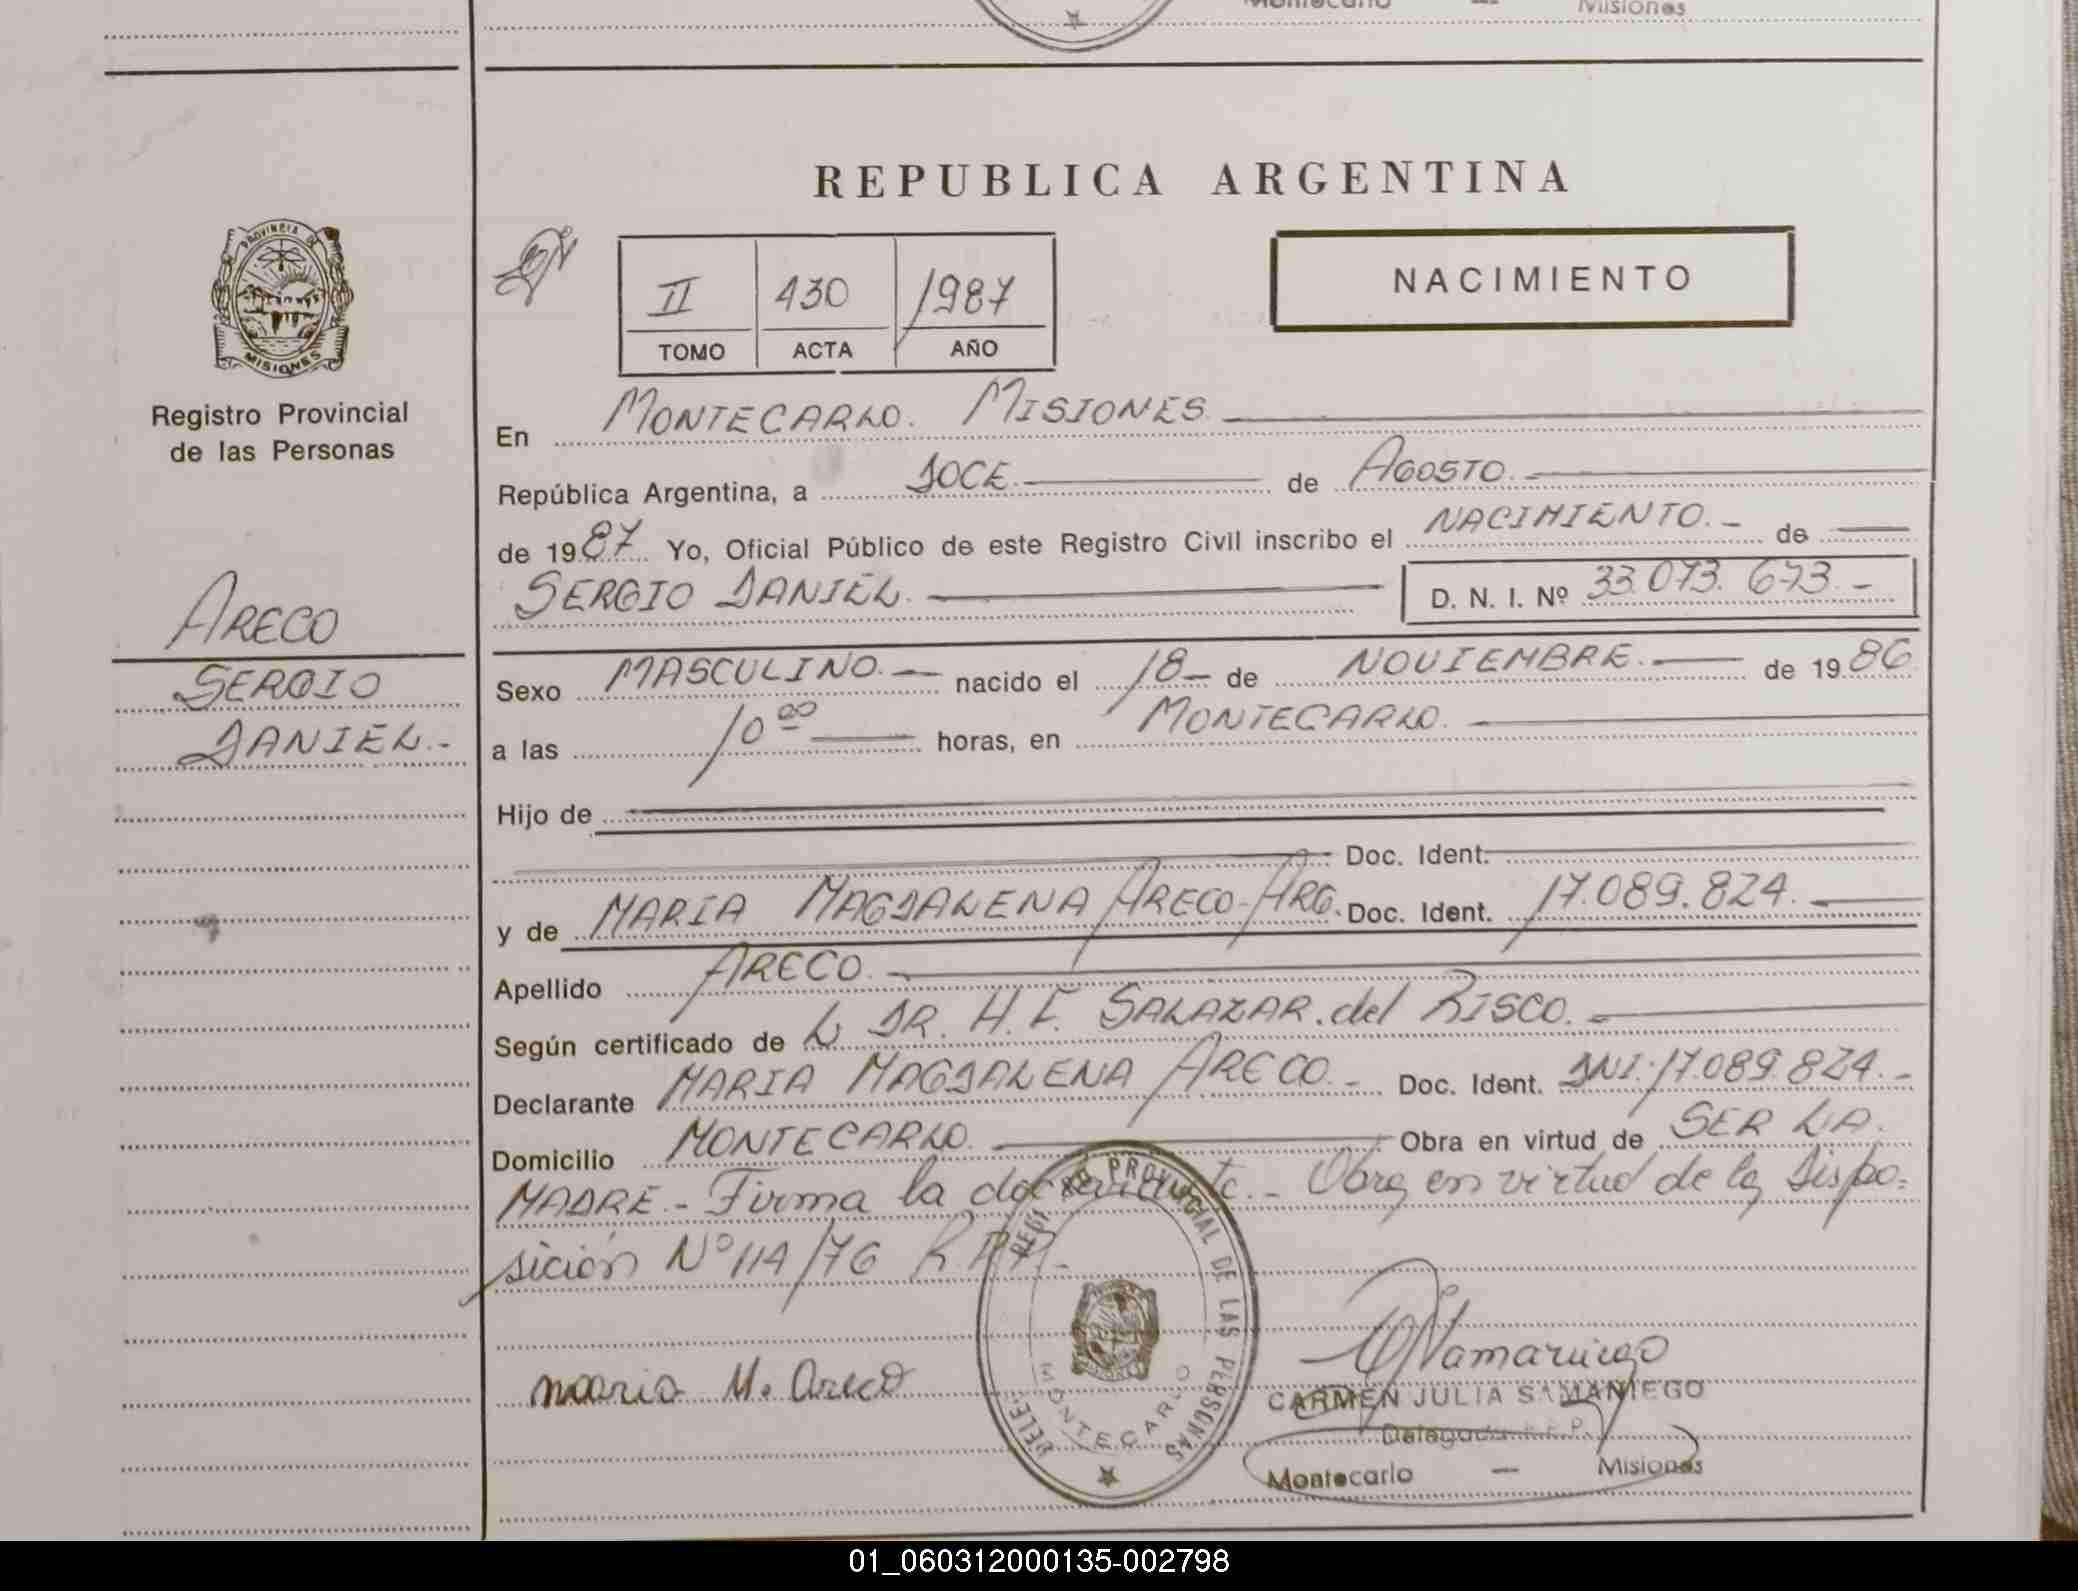 Montecarlo — Misiones
REPUBLICA ARGENTINA
PROVINCIA DE
MISIONES
Registro Provincial
de las Personas
II 430 1987
TOMO ACTA AÑO
NACIMIENTO
En MONTECARLO. MISIONES.
República Argentina, a DOCE. de AGOSTO.
de 1987 Yo, Oficial Público de este Registro Civil inscribo el NACIMIENTO. - de
SERGIO DANIEL. D. N. I. Nº 33.073.673.-
ARECO
SERGIO
DANIEL.-
Sexo MASCULINO. nacido el 18 de NOVIEMBRE. de 1986
a las 10 00 horas, en MONTECARLO.
Hijo de
Doc. Ident.
y de MARIA MAGDALENA ARECO-ARG. Doc. Ident. 17.089.824.
Apellido ARECO.
Según certificado de L DR. H. F. SALAZAR. del RISCO.
Declarante MARIA MAGDALENA ARECO.- Doc. Ident. DNI: 17.089.824.-
Domicilio MONTECARLO. Obra en virtud de SER LA.
MADRE.- Firma la declarante.- Obra en virtud de la Dispo-
sición Nº 114/76 R.P.P.-
REGISTRO PROVINCIAL DE LAS PERSONAS
DELE.
MONTECARLO
maria M. Areco
CARMEN JULIA SAMANIEGO
Delegada R.P.P.
Montecarlo — Misiones
01_060312000135-002798